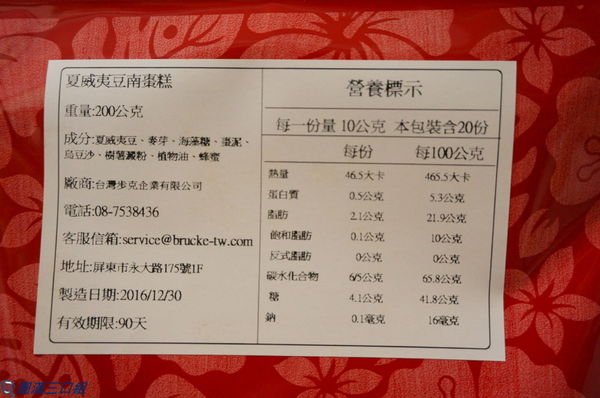 夏威夷豆南棗糕
重量:200公克
成分:夏威夷豆、麥芽、海藻糖、棗泥、
烏豆沙、樹薯澱粉、植物油、蜂蜜
廠商:台灣步克企業有限公司
電話:08-7538436
客服信箱:service@brucke-tw.com
地址:屏東市永大路175號1F
製造日期:2016/12/30
有效期限:90天
營養標示
每一份量 10公克 本包裝含20份
每份 每100公克
熱量 46.5大卡 465.5大卡
蛋白質 0.5公克 5.3公克
脂肪 2.1公克 21.9公克
飽和脂肪 0.1公克 10公克
反式脂肪 0公克 0公克
碳水化合物 6/5公克 65.8公克
糖 4.1公克 41.8公克
鈉 0.1毫克 16毫克